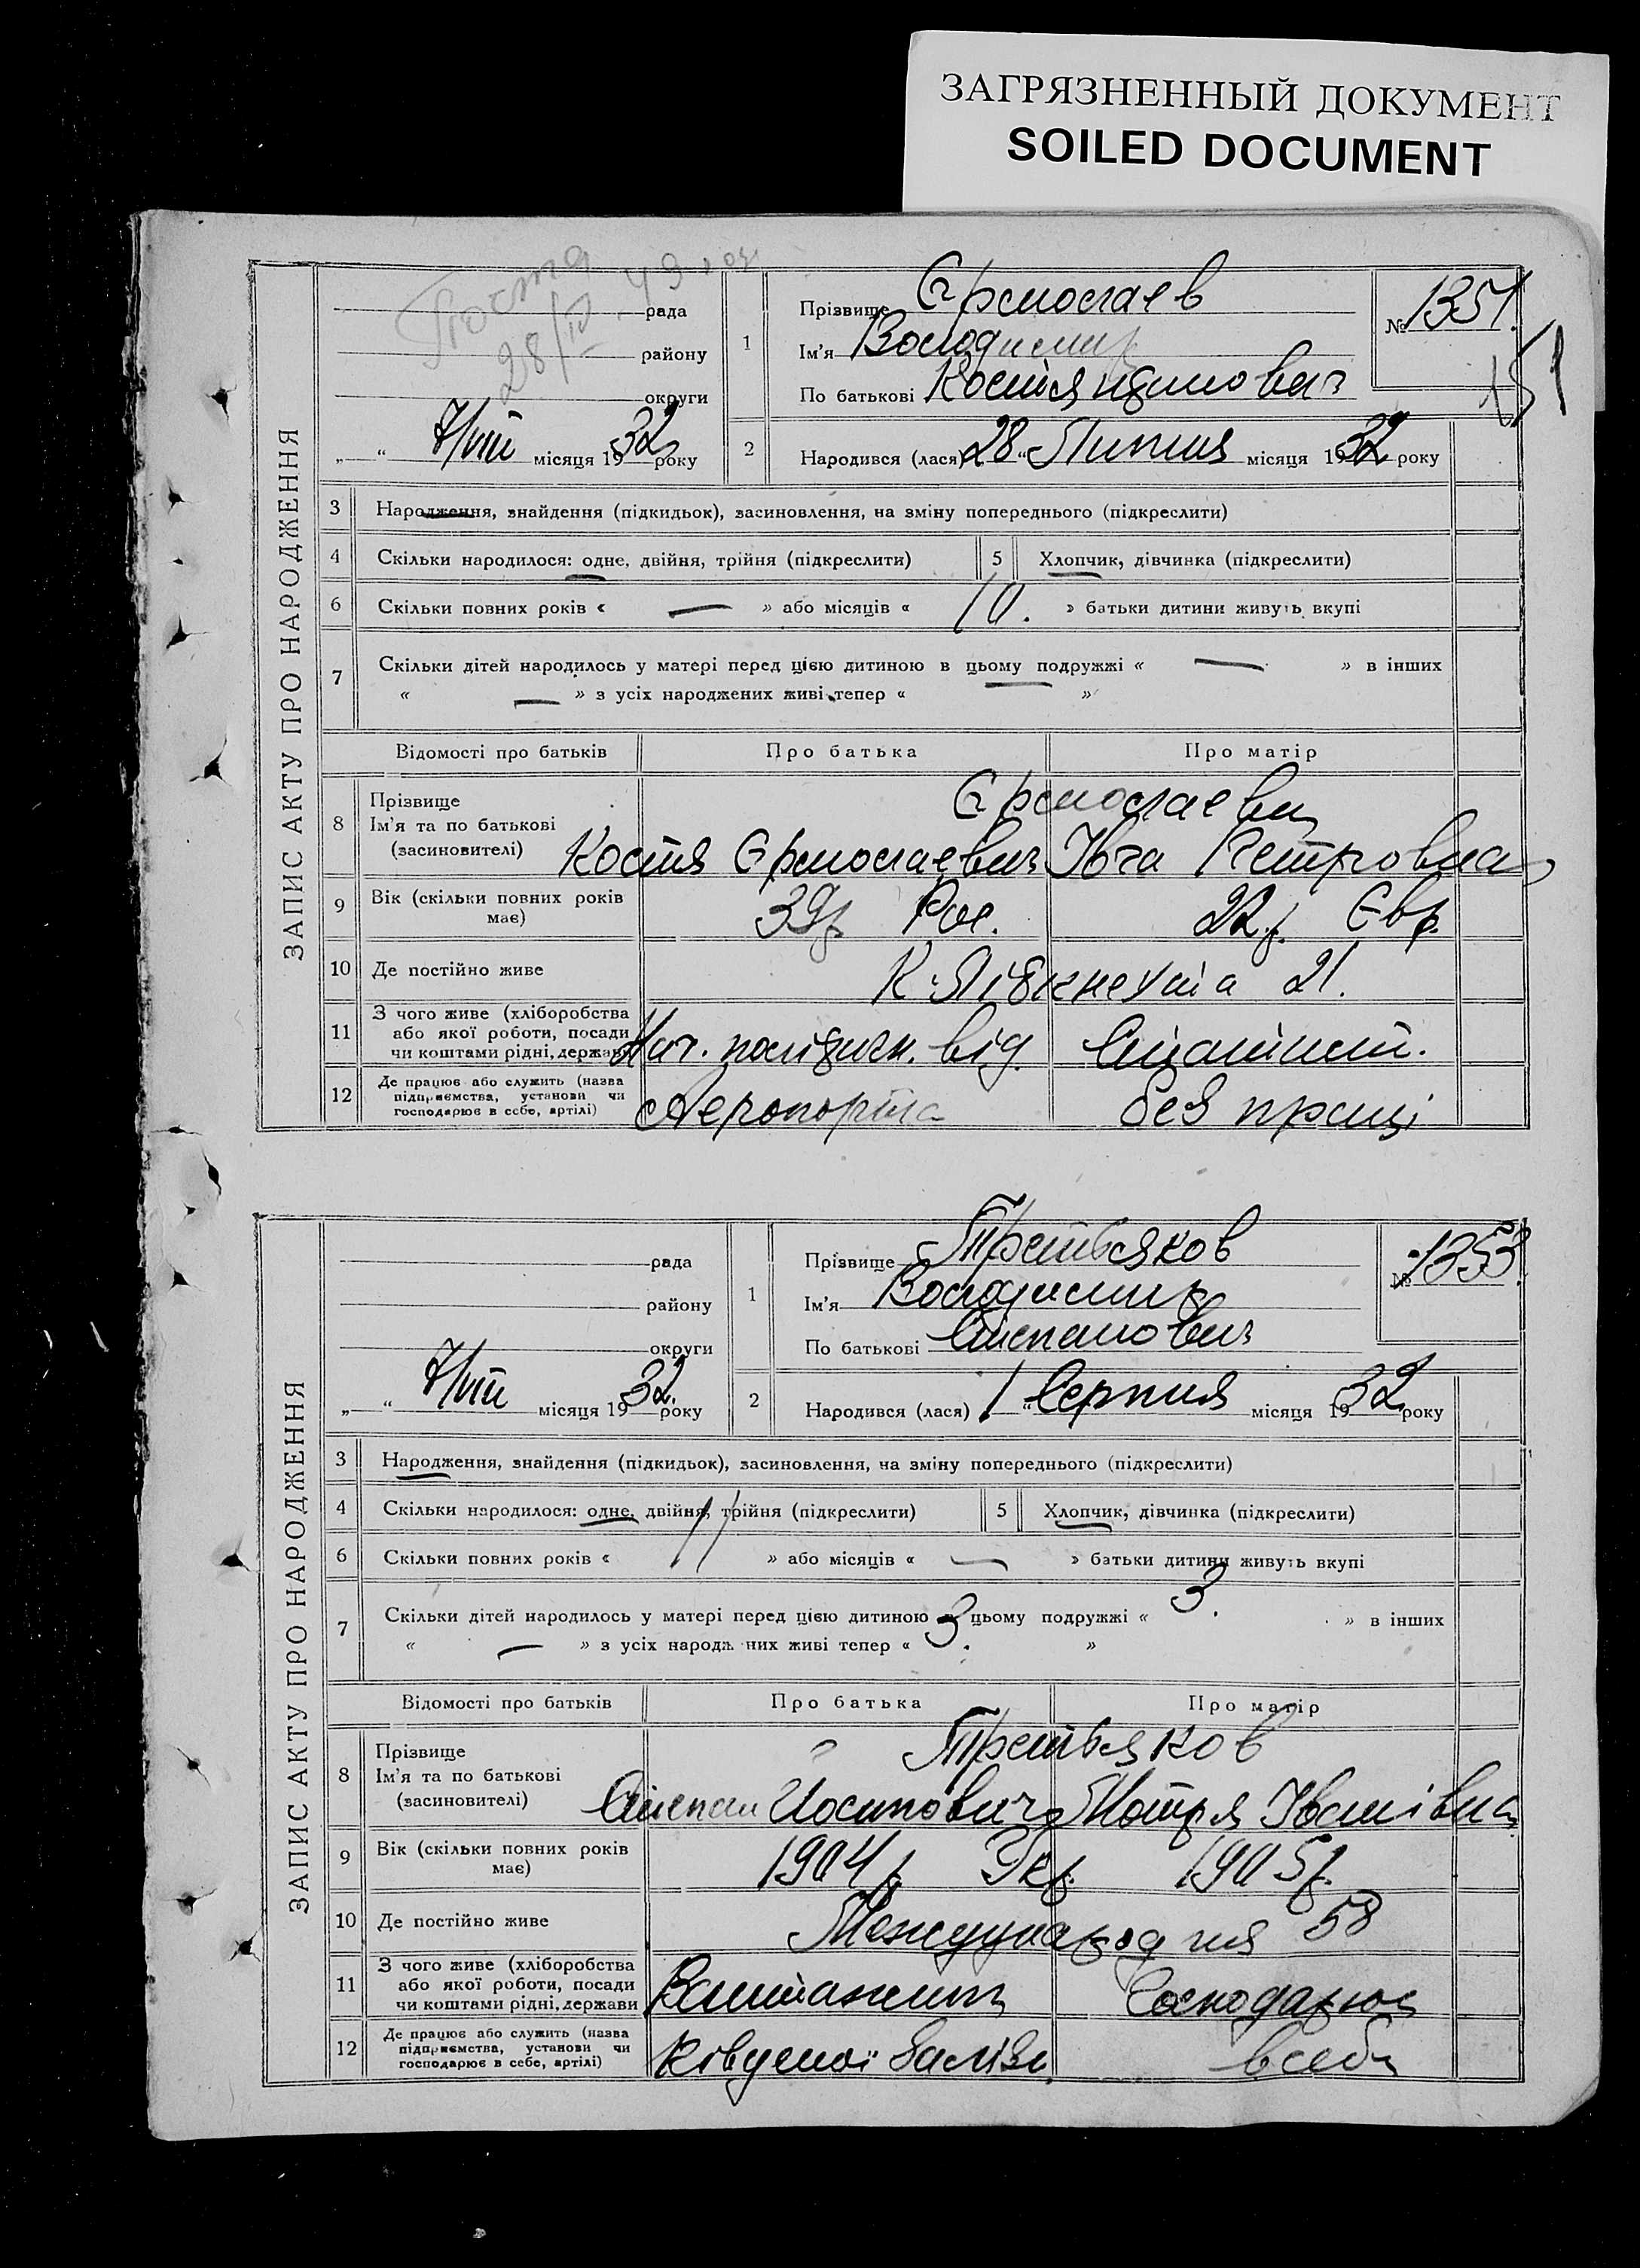 ЗАГРЯЗНЕННЫЙ ДОКУМЕНТ
SOILED DOCUMENT
ЗАПИС АКТУ ПРО НАРОДЖЕННЯ
28/IV 49
рада
району
округи
„ “ 7/VIII місяця 1932 року
1
Прізвище Єрмолаев
Ім'я Володимир
По батькові Костянтинович
№ 1351.
151
2
Народився (лася) 28 “ Липня місяця 1932 року
3 Народження, знайдення (підкидьок), засиновлення, на зміну попереднього (підкреслити)
4 Скільки народилося: одне, двійня, трійня (підкреслити) 5 Хлопчик, дівчинка (підкреслити)
6 Скільки повних років « — » або місяців « 10. » батьки дитини живуть вкупі
7 Скільки дітей народилось у матері перед цією дитиною в цьому подружжі « — » в інших
« — » з усіх народжених живі тепер « »
Відомості про батьків Про батька Про матір
8 Прізвище Єрмолаеви
Ім'я та по батькові
(засиновителі) Костя Єрмолаевич Івга Петровна
9 Вік (скільки повних років має) 39 р. Рос. 22 р. Євр.
10 Де постійно живе К. Лібкнехта 21.
11 З чого живе (хліборобства або якої роботи, посади чи коштами рідні, держави Нач. політичн. від.
12 Де працює або служить (назва підприємства, установи чи господарює в себе, артілі) Аеропорта без праці
ЗАПИС АКТУ ПРО НАРОДЖЕННЯ
рада
району
округи
„ “ 7/VIII місяця 1932. року
1
Прізвище Третьяков
Ім'я Володимир
По батькові Степанович
№ 1353.
2
Народився (лася) 1 “ Серпня місяця 1932 року
3 Народження, знайдення (підкидьок), засиновлення, на зміну попереднього (підкреслити)
4 Скільки народилося: одне, двійня, трійня (підкреслити) 5 Хлопчик, дівчинка (підкреслити)
6 Скільки повних років « 11 » або місяців « — » батьки дитини живуть вкупі
7 Скільки дітей народилось у матері перед цією дитиною в цьому подружжі « 3. » в інших
« — » з усіх народжених живі тепер « 3. »
Відомості про батьків Про батька Про матір
8 Прізвище Третьяков
Ім'я та по батькові
(засиновителі) Степан Иосипович Мотря Іванівна
9 Вік (скільки повних років має) 1904 р. Укр. 1905 р.
10 Де постійно живе Междуународня 58
11 З чого живе (хліборобства або якої роботи, посади чи коштами рідні, держави Вантажник Господарює
12 Де працює або служить (назва підприємства, установи чи господарює в себе, артілі) Південої Заліз. в себе